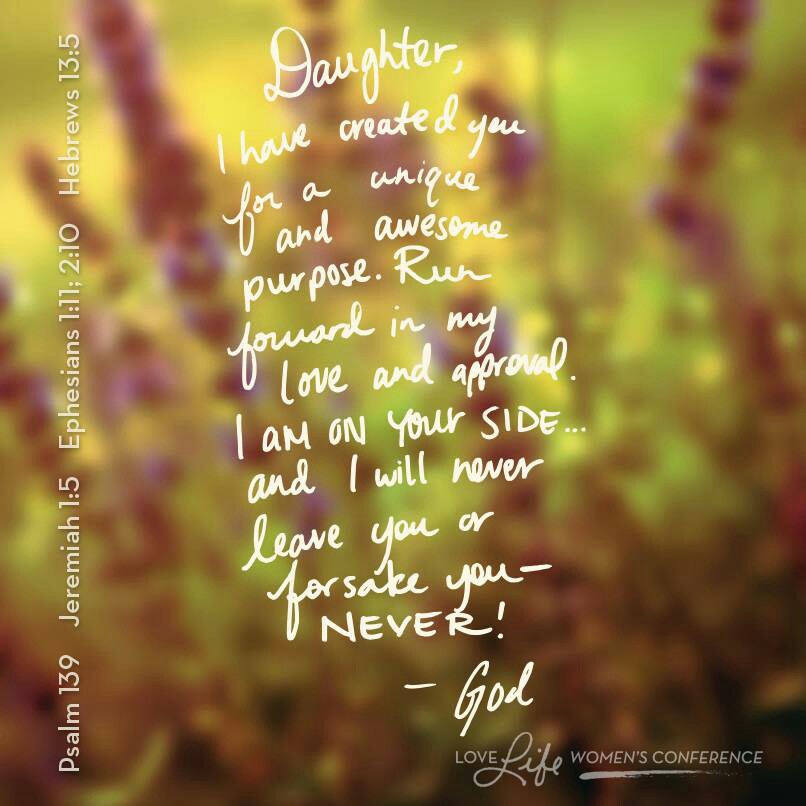 Daughter,
I have created you
for a unique
and awesome
purpose. Run
forward in my
love and approval.
I AM ON YOUR SIDE...
and I will never
leave you or
forsake you—
NEVER!
— God
Psalm 139 Jeremiah 1:5 Ephesians 1:11; 2:10 Hebrews 13:5
LOVE Life WOMEN'S CONFERENCE